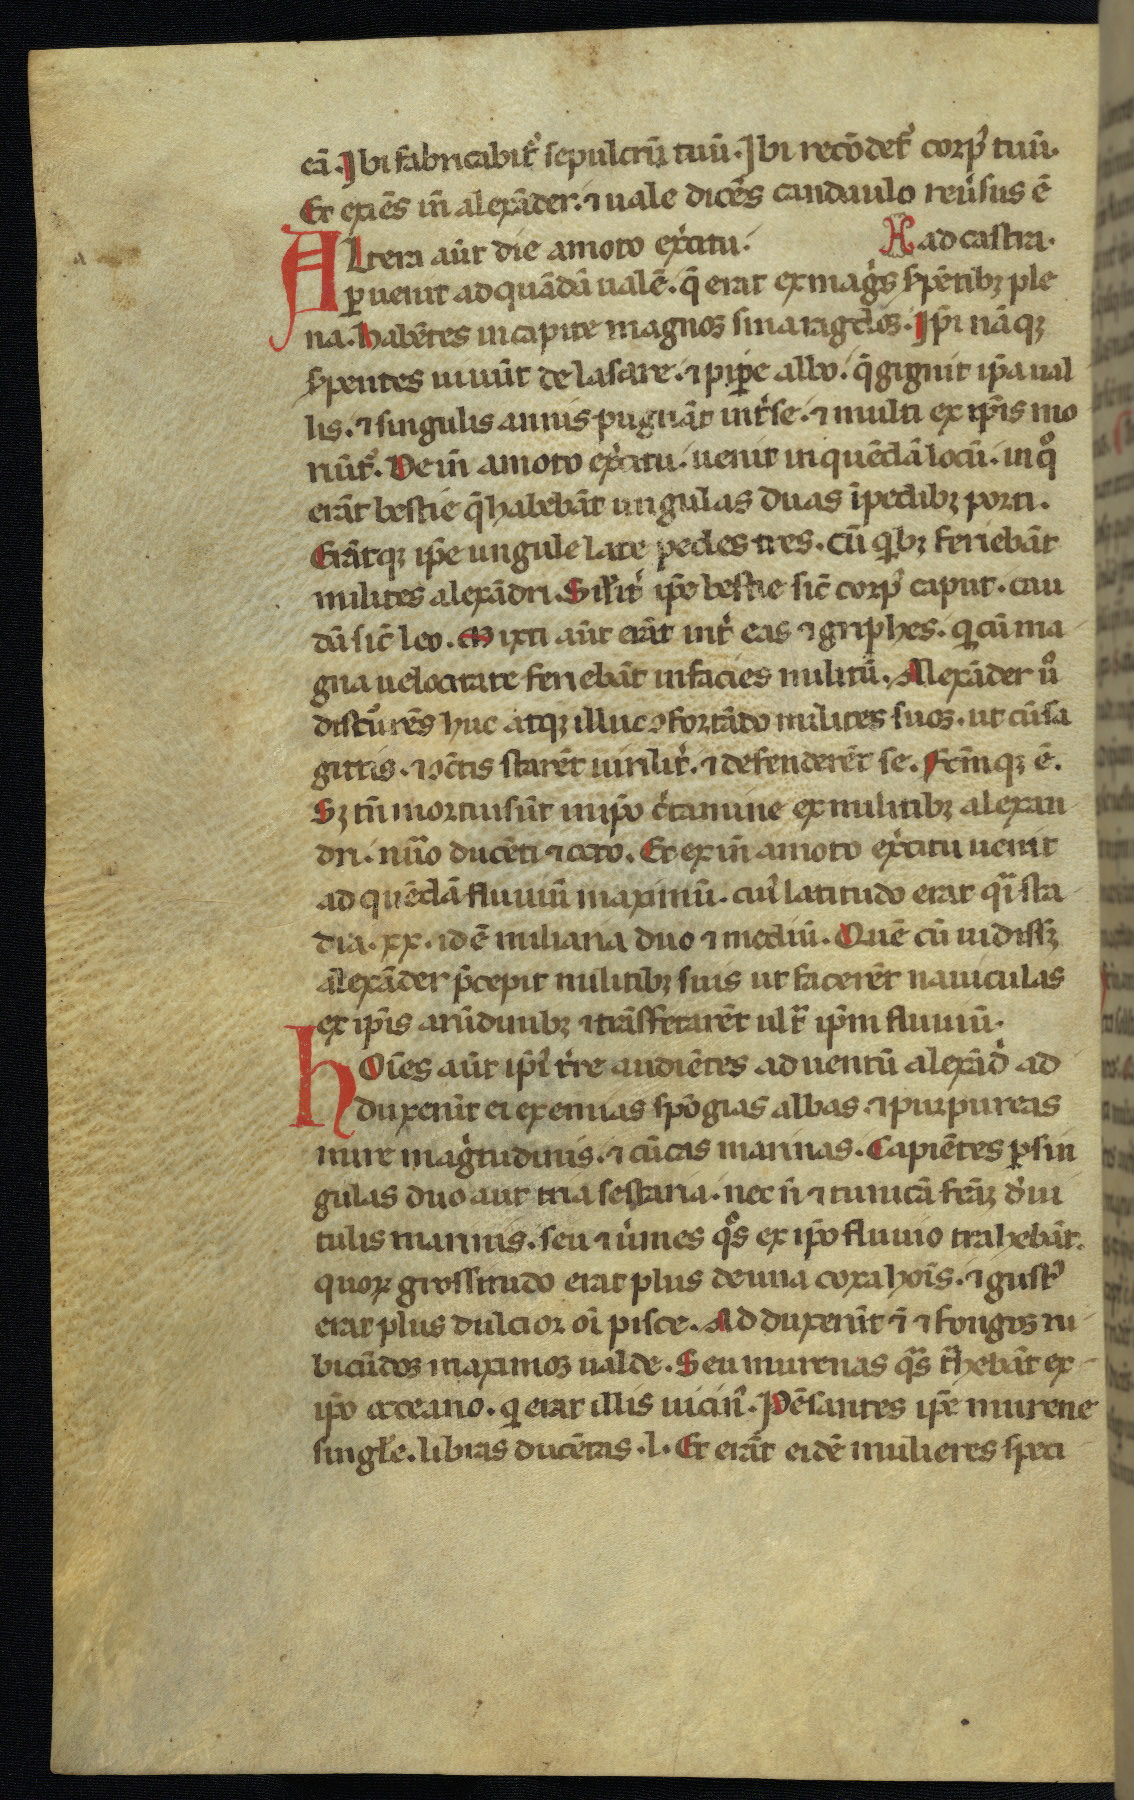 eā. Ibi fabricabit᷑ sepulcrū tuū. Ibi recōdet᷑ corpꝰ tuū.
Et exiēs iñ alexāder. ⁊ uale dicēs candaulo reūsus ē
Altera aūt die amoto exc̾itu. ad castra.
ꝑuenit ad quādā valē. q̄ erat ex magͥs s̾pētibꝫ ple
na. habētes in capite magnos smaragdos. Ip̄i nāqꝫ
s̾pentes uiuūt de lasare. ⁊ pip̄e albo. q̄ gignit ip̄a ual
lis. ⁊ singulis annis pugnāt int̾ se. ⁊ multi ex ip̄is mo
riūt᷑. Deiñ amoto exc̾itu. uenit in quēdā locū. in qͦ
erāt bestie q̄ habebāt ungulas duas ī pedibꝫ porci.
Erātqꝫ ip̄e ungule late pedes tres. cū qͥbꝫ feriebāt
milites alexādri. Silit̾ ip̄e bestie sic̄ corpꝰ caput. cau
dā sic̄ leo. Mixti aūt erāt int̾ eas ⁊ griphes. qͥ cū ma
gna uelocitate feriebāt in facies militū. Alexāder uͦ
discūrēs huc atqꝫ illuc ꝯfortādo milites suos. ut cū sa
gittis. ⁊ ꝯtis starēt uirilit̾. ⁊ defenderēt se. Fc̄mqꝫ ē.
Sꝫ tñ mortui sūt in ip̄o c̾tamine ex militibꝫ alexan
dri. nūo ducēti ⁊ octo. Et exiñ amoto exc̾itu uenit
ad quēdā fluuiū maximū. cuiꝰ latitudo erat qͣsi sta
dia. xx. id ē miliaria duo ⁊ mediū. Quē cū uidissꝫ
alexāder p̄cepit militibꝫ suis ut facerēt nauiculas
ex ip̄is arūdinibꝫ ⁊ trāsfretarēt ult᷑ ip̄m fluuiū.
hOīes aūt ip̄iꝰ t̾re audiētes aduentū alexād̾ ad
duxerūt ei exenias spōgias albas. ⁊ purpureas
mire magͥtudinis. ⁊ cūcas marinas. Capiētes ꝑ sin
gulas duo aut tria sestaria. nec ñ ⁊ tunicā fc̄āꝫ d̾ ui
tulis marinis. seu ⁊ u̾mes qͦs ex ip̄o fluuio trahebāt.
quoꝝ grossitudo erat plus de una coxa hoīs. ⁊ gustꝰ
erat plus dulcior oī pisce. Adduxerūt ī ⁊ fongos ru
bicūdos maximos ualde. Seu murenas qͣs t̾hebāt ex
ip̄o occeano. qͥ erat illis uicinꝰ. Pēsantes ip̄e murene
singl̄e. libras ducētas .l. Et erāt eidē mulieres speci